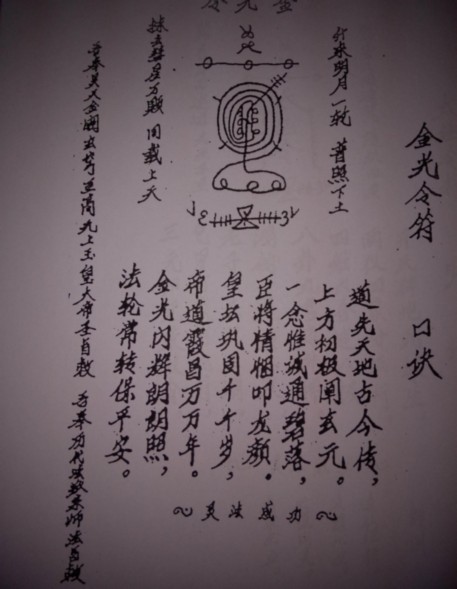 金光令符 口诀
道先天地古今传，
上方初极阐玄元。
一念惟诚通碧落，
臣将精悃叩龙颜。
皇坛巩固千千岁，
帝道霞昌万万年。
金光内辉朗朗照，
法轮常转保平安。
灵法成功
来明月一轮 普照下土
抹去彗星万颗 同载上天
吾奉昊天金阙玄穹 上玉皇大帝圣旨敕 吾奉历代 宗师法旨敕